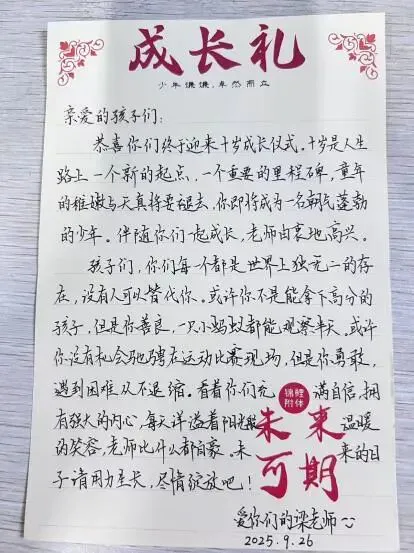 成长礼
少年谦谦,卓然而立
亲爱的孩子们:
恭喜你们终于迎来十岁成长仪式。十岁是人生
路上一个新的起点,一个重要的里程碑,童年
的稚嫩与天真将要褪去,你即将成为一名朝气蓬勃
的少年。伴随你们一起成长,老师由衷地高兴。
孩子们,你们每一个都是世界上独一无二的存
在,没有人可以替代你。或许你不是能拿下高分的
孩子,但是你善良,一只小蚂蚁都能观察半天。或许
你没有机会驰骋在运动比赛现场,但是你勇敢,
遇到困难从不退缩。看着你们充 锦鲤附体 满自信,拥
有强大的内心,每天洋溢着阳光般 未来 温暖
的笑容,老师比什么都自豪。未 来的日
子请用力生长,尽情绽放吧! 可期
爱你们的梁老师
2025.9.26